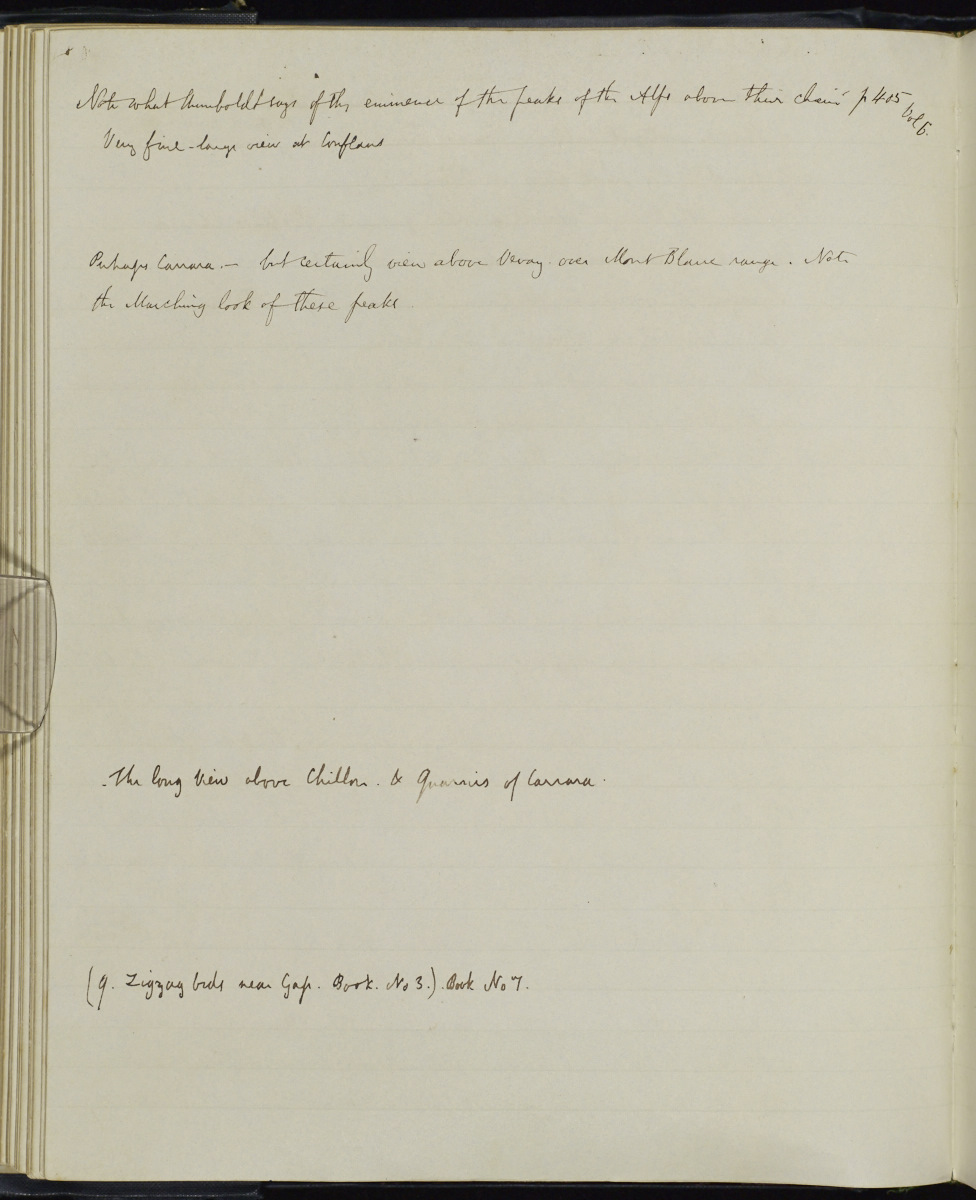 Note what Humboldt says of the eminence of the peaks of the Alps above their chain p 405 Vol 5.
Very fine large view at Conflans
Perhaps Carrara. — but certainly view above Vevay over Mont Blanc range. Note
the Marching look of these peaks.
The long view above Chillon. & Quarries of Carrara.
(q. Zigzag beds near Gap. Book. No 3.). Book No 7.